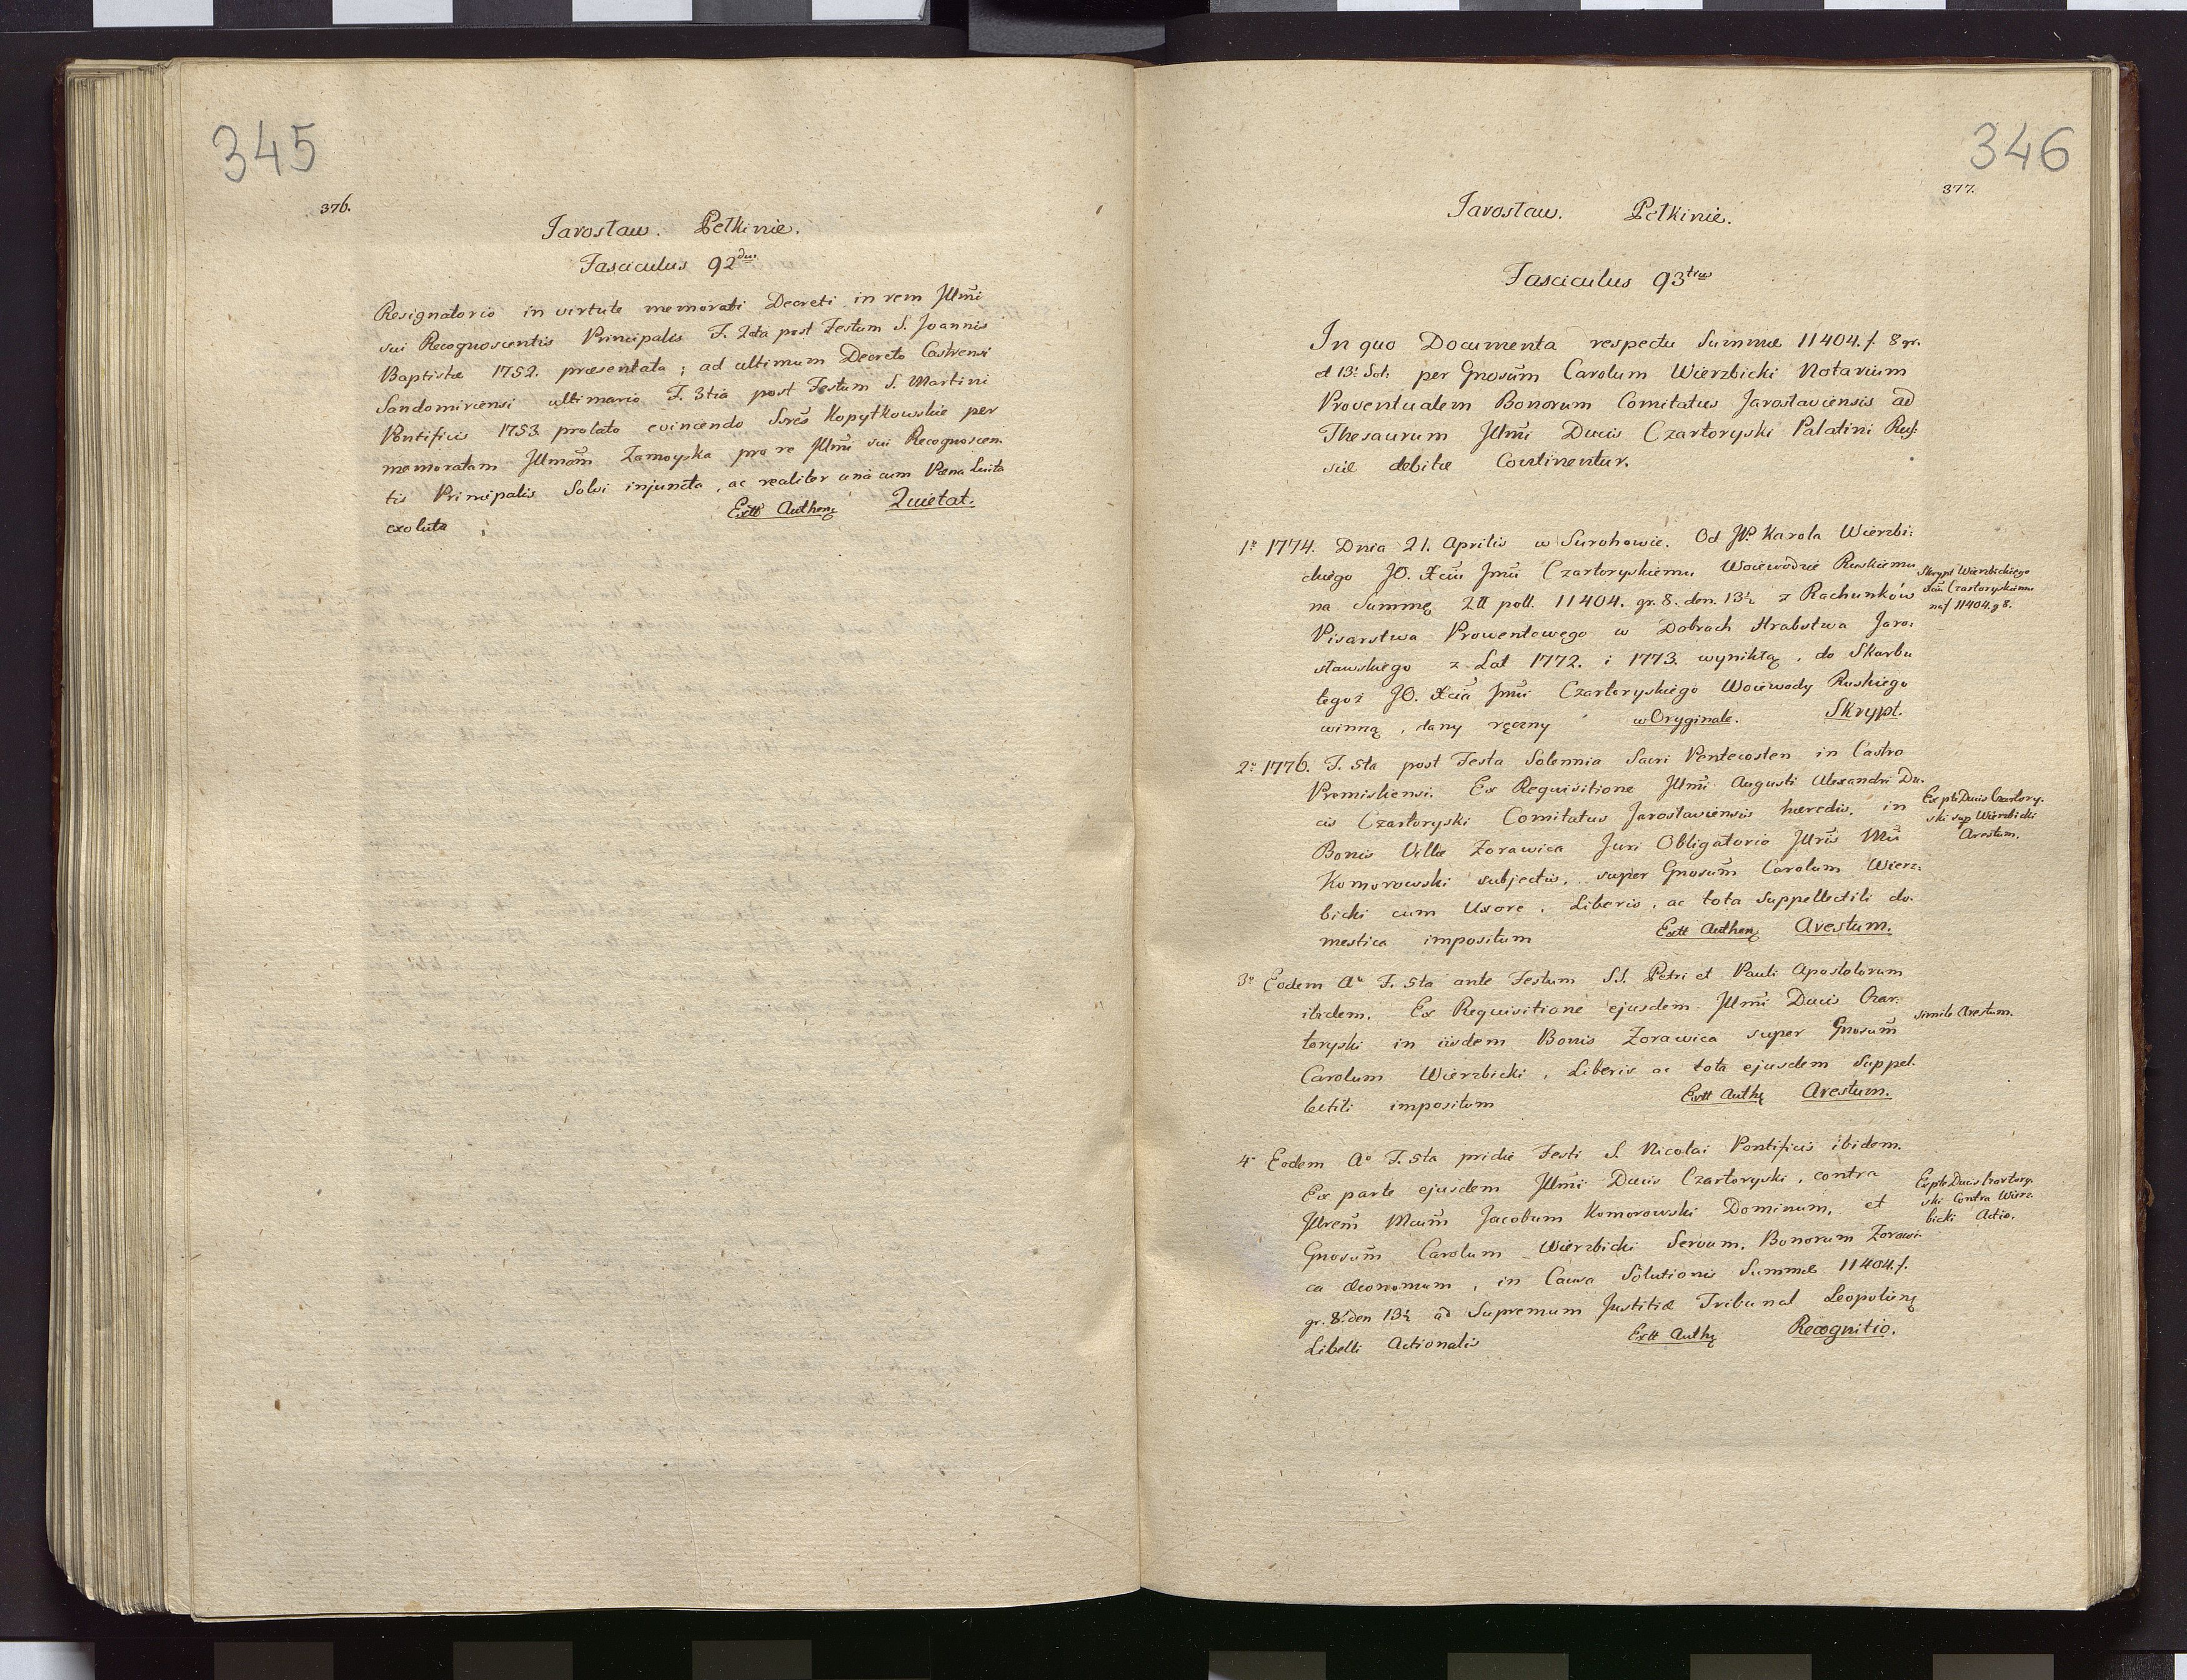 345
376.
Jarosław. Pełkinie.
Fasciculus 92dus
Resignatorio in virtute memorati Decreti in rem Jllm̃i
sui Recognoscentis Principalis F. 2da post Festum S. Joannis
Baptistæ 1752. præsentata; ad ultimum Decreto Castrensi
Sandomiriensi ultimario F. 3tia post Festum S. Martini
Pontificis 1753 prolato evincendo Ssres Kopytkowskie per
memoratam Jllmam Zamoyska pro re Jllm̃i sui Recognoscen.
tis Principalis Solvi injuncta, ac realiter una cum Pœna Luita
exoluta ; Extt Authen Quietat.
346
377.
Jarosław. Pełkinie.
Fasciculus 93tius
In quo Documenta respectu Summæ 11404. f. 8 gr.
et 13½ Sol: per Gnosum̃ Carolum Wierzbicki Notarium
Proventualem Bonorum Comitatus Jaroslaviensis ad
Thesaurum Jllm̃i Ducis Czartoryski Palatini Rus:
siæ debitæ Continentur.
1º 1774. Dnia 21. Aprilis w Surohowie. Od JP. Karola Wierzbi:
ckiego JO. Xciu Jm̃ci Czartoryskiemu Woiewodzie Ruskiemu
na Summę Złł poll. 11404. gr. 8. den. 13½ z Rachunków
Pisarstwa Prowentowego w Dobrach Hrabstwa Jaro:
sławskiego z Lat 1772. i 1773. wynikłą, do Skarbu
tegoż JO. Xcia Jm̃ci Czartoryskiego Woiewody Ruskiego
winną, dany ręczny w Oryginale. Skrypt.
Skrypt Wierzbickiego
Xciu Czartoryskiemu
na f 11404. g 8.
2º 1776. F. 5ta post Festa Solennia Sacri Pentecosten in Castro
Premisliensi. Ex Requisitione Jllm̃i Augusti Alexandri Du.
cis Czartoryski Comitatus Jaroslaviensis hæredis, in
Bonis Villæ Zorawica Juri Obligatorio Jllris Mci
Komorowski subjectis, super Gnosum̃ Carolum Wierz:
bicki cum Uxore, Liberis, ac tota Suppellectili do.
mestica impositum Extt Authen Arestum.
Ex pte Ducis Czartory.
ski sup Wierzbicki
Arestum.
3º Eodem Aº F. 5ta ante Festum S.S. Petri et Pauli Apostolorum
ibidem. Ex Requisitione ejusdem Jllm̃i Ducis Czar:
toryski in iisdem Bonis Zorawica super Gnosum̃
Carolum Wierzbicki, Liberis ac tota ejusdem Suppel.
lectili impositum Extt Auth Arestum.
simile Arestum.
4º Eodem Aº F. 5ta pridie Festi S. Nicolai Pontificis ibidem.
Ex parte ejusdem Jllm̃i Ducis Czartoryski, contra
Jllrem̃ Mcum̃ Jacobum Komorowski Dominum, et
Gnosum̃ Carolum Wierzbicki Servum, Bonorum Zorawi.
ca Œconomum, in Causa Solutionis Summæ 11404. f.
gr. 8. den 13½ ad Supremum Justitiæ Tribunal Leopolien
Libelli Actionalis Extt Auth Recognitio.
Ex pte Ducis Czartory.
ski Contra Wierz.
bicki Actio.